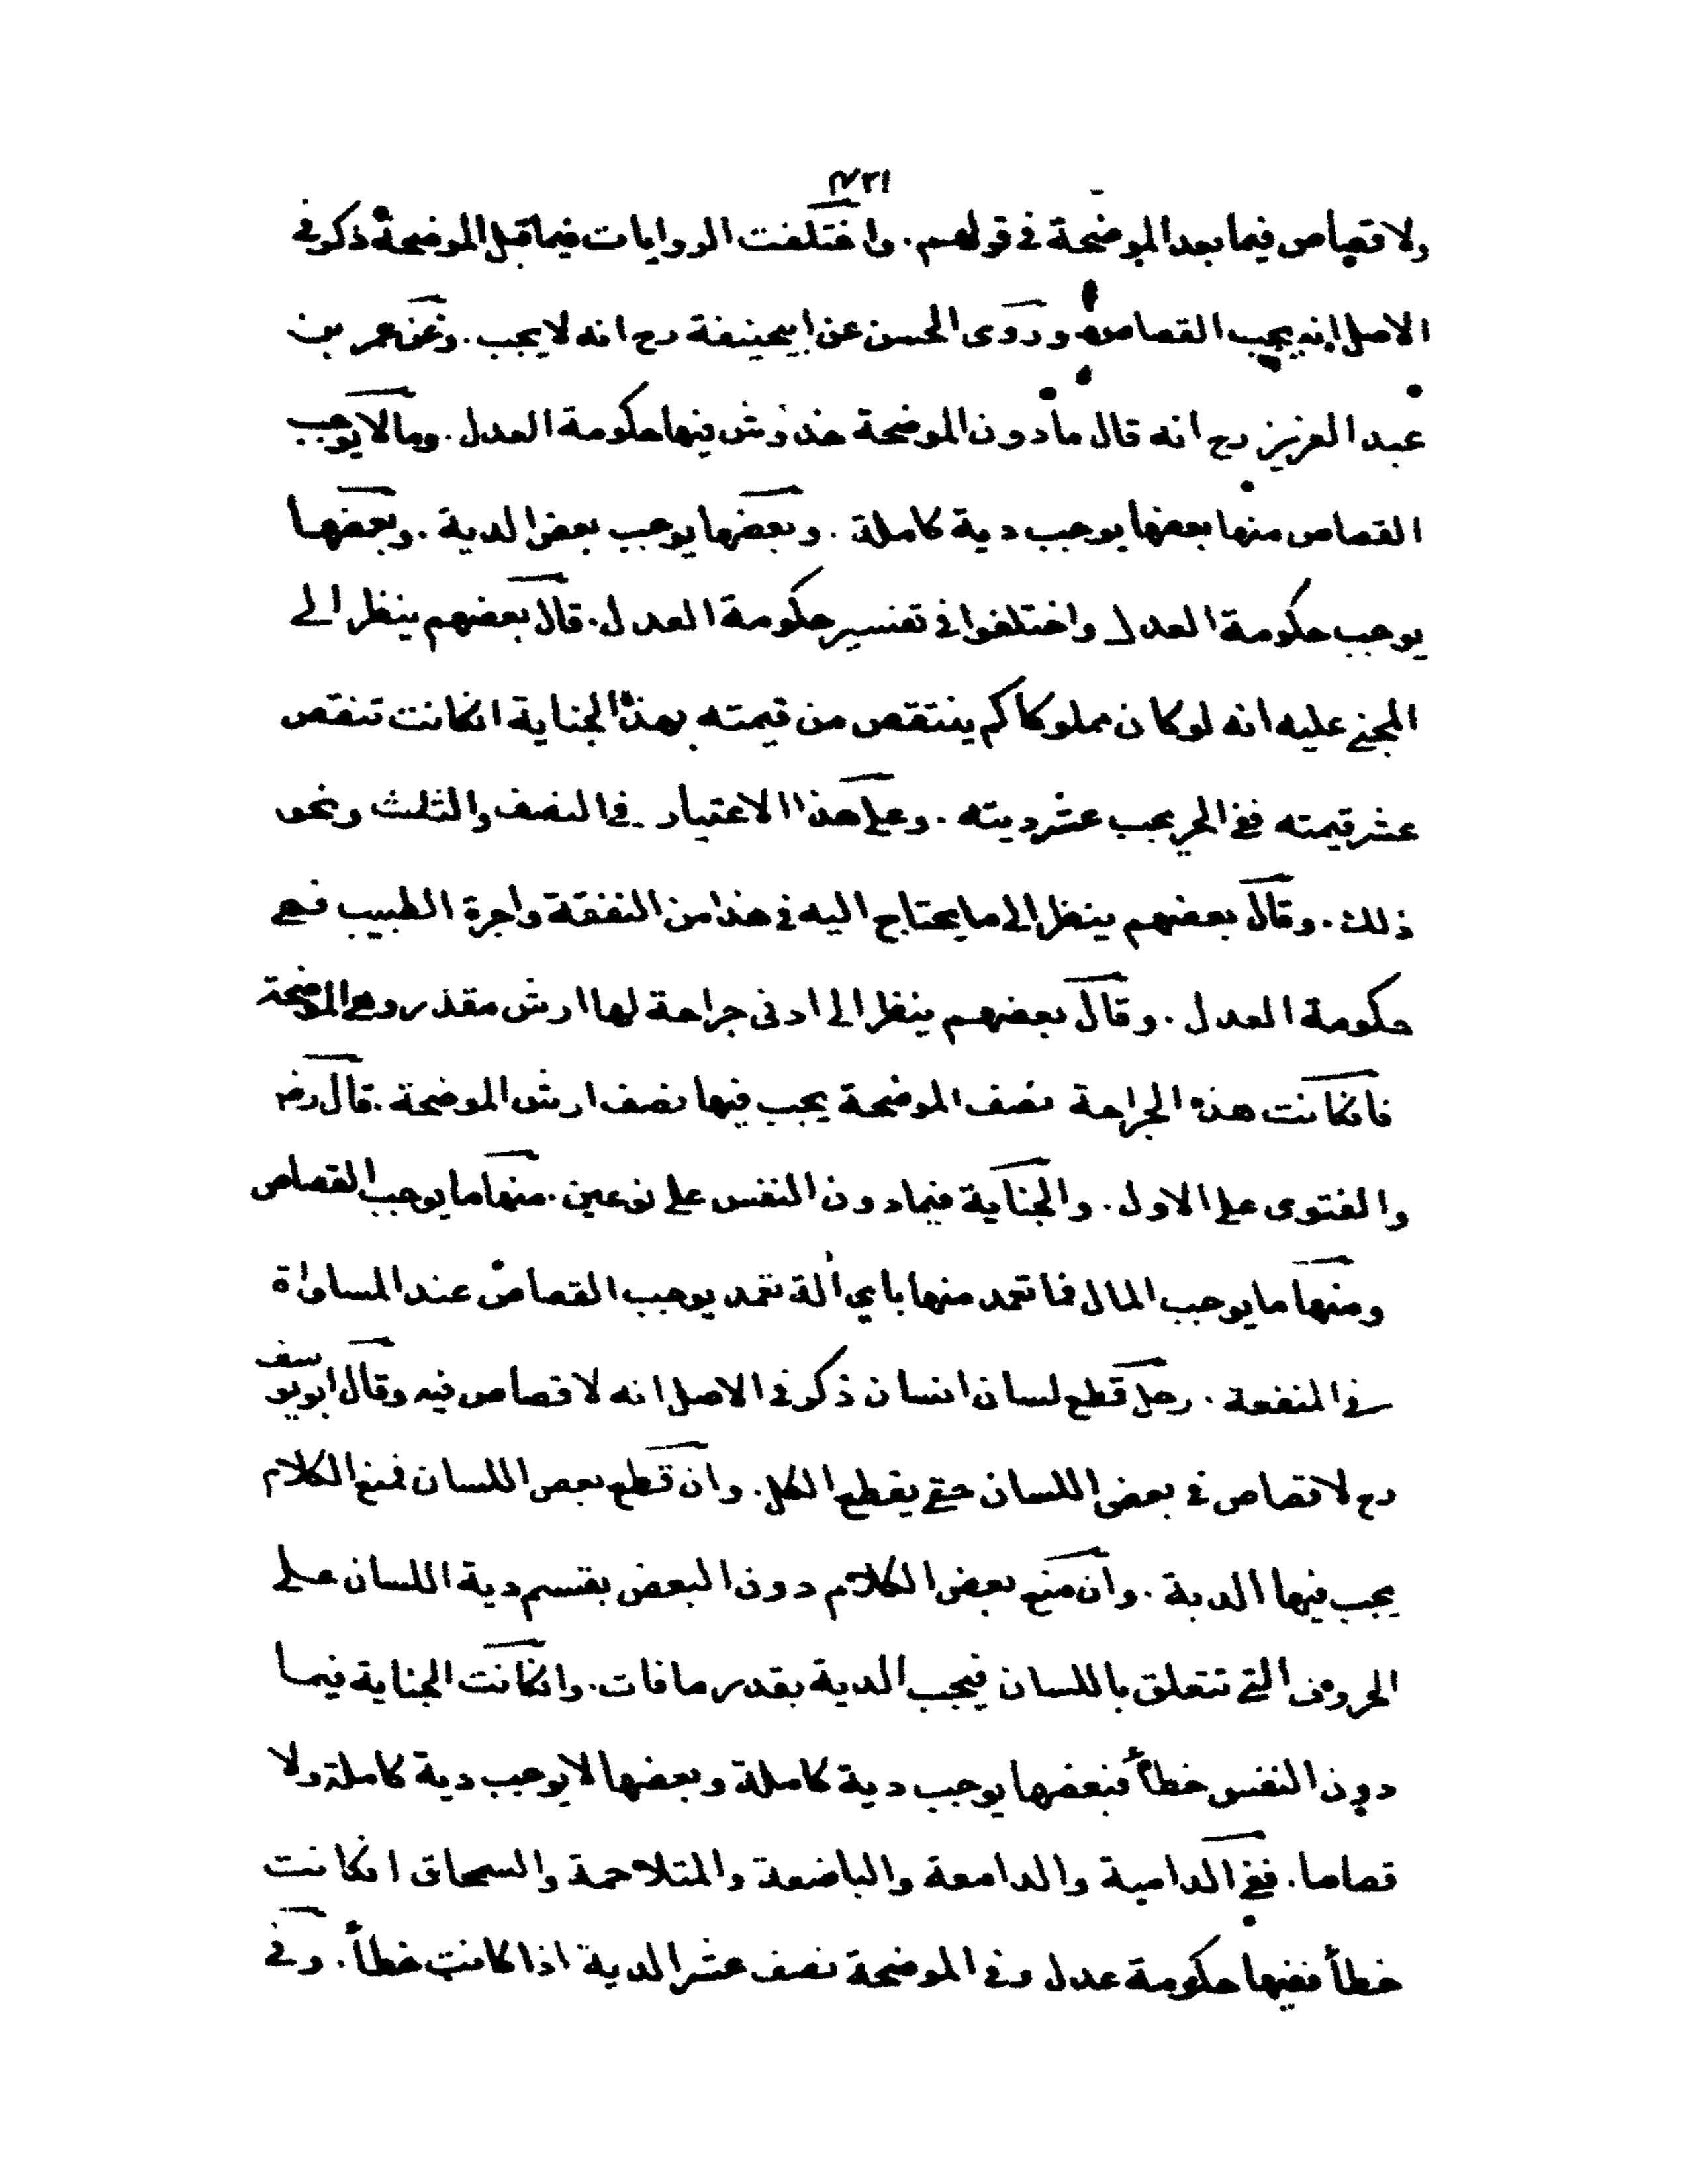 ولا قصاص فيما بعد الموضحة في قولهم. واختلفت الروايات فيما قبل الموضحة ذكر في
الاصل انه يجب القصاص وروى الحسن عن ابيحنيفة رح انه لا يجب. وعن عمر بن
عبد العزيز رح انه قال ما دون الموضحة خدوش فيها حكومة العدل. وما لا يوجب
القصاص منها بعضها يوجب دية كاملة. وبعضها يوجب بعض الدية. وبعضها
يوجب حكومة العدل واختلفوا في تفسير حكومة العدل. قال بعضهم ينظر الى
المجنى عليه انه لو كان مملوكا كم ينتقص من قيمته بهذه الجناية انكانت تنقص
عشر قيمته ففي الحر يجب عشر ديته. وعلى هذا الاعتبار في النصف والثلث ونحو
ذلك. وقال بعضهم ينظر الى ما يحتاج اليه في هذا من النفقة واجرة الطبيب فهي
حكومة العدل. وقال بعضهم ينظر الى ادنى جراحة لها ارش مقدر وهي الموضحة
فانكانت هذه الجراحة نصف الموضحة يجب فيها نصف ارش الموضحة. قال رض
والفتوى على الاول. والجناية فيما دون النفس على نوعين. منها ما يوجب القصاص
ومنها ما يوجب المال فما تعمد منها باي آلة تعمد يوجب القصاص عند المساواة
في المنفعة. رجل قطع لسان انسان ذكر في الاصل انه لا قصاص فيه وقال ابو يوسف
رح لا قصاص في بعض اللسان حتى يقطع الكل. وان قطع بعض اللسان فمنع الكلام
يجب فيها الدية. وان منع بعض الكلام دون البعض يقسم دية اللسان على
الحروف التي تتعلق باللسان فيجب الدية بقدر ما فات. وانكانت الجناية فيما
دون النفس خطأ فبعضها يوجب دية كاملة وبعضها لا يوجب دية كاملة ولا
قصاصا. ففي الدامية والدامعة والباضعة والمتلاحمة والسمحاق انكانت
خطأ ففيها حكومة عدل وفي الموضحة نصف عشر الدية اذا كانت خطأ. وفي